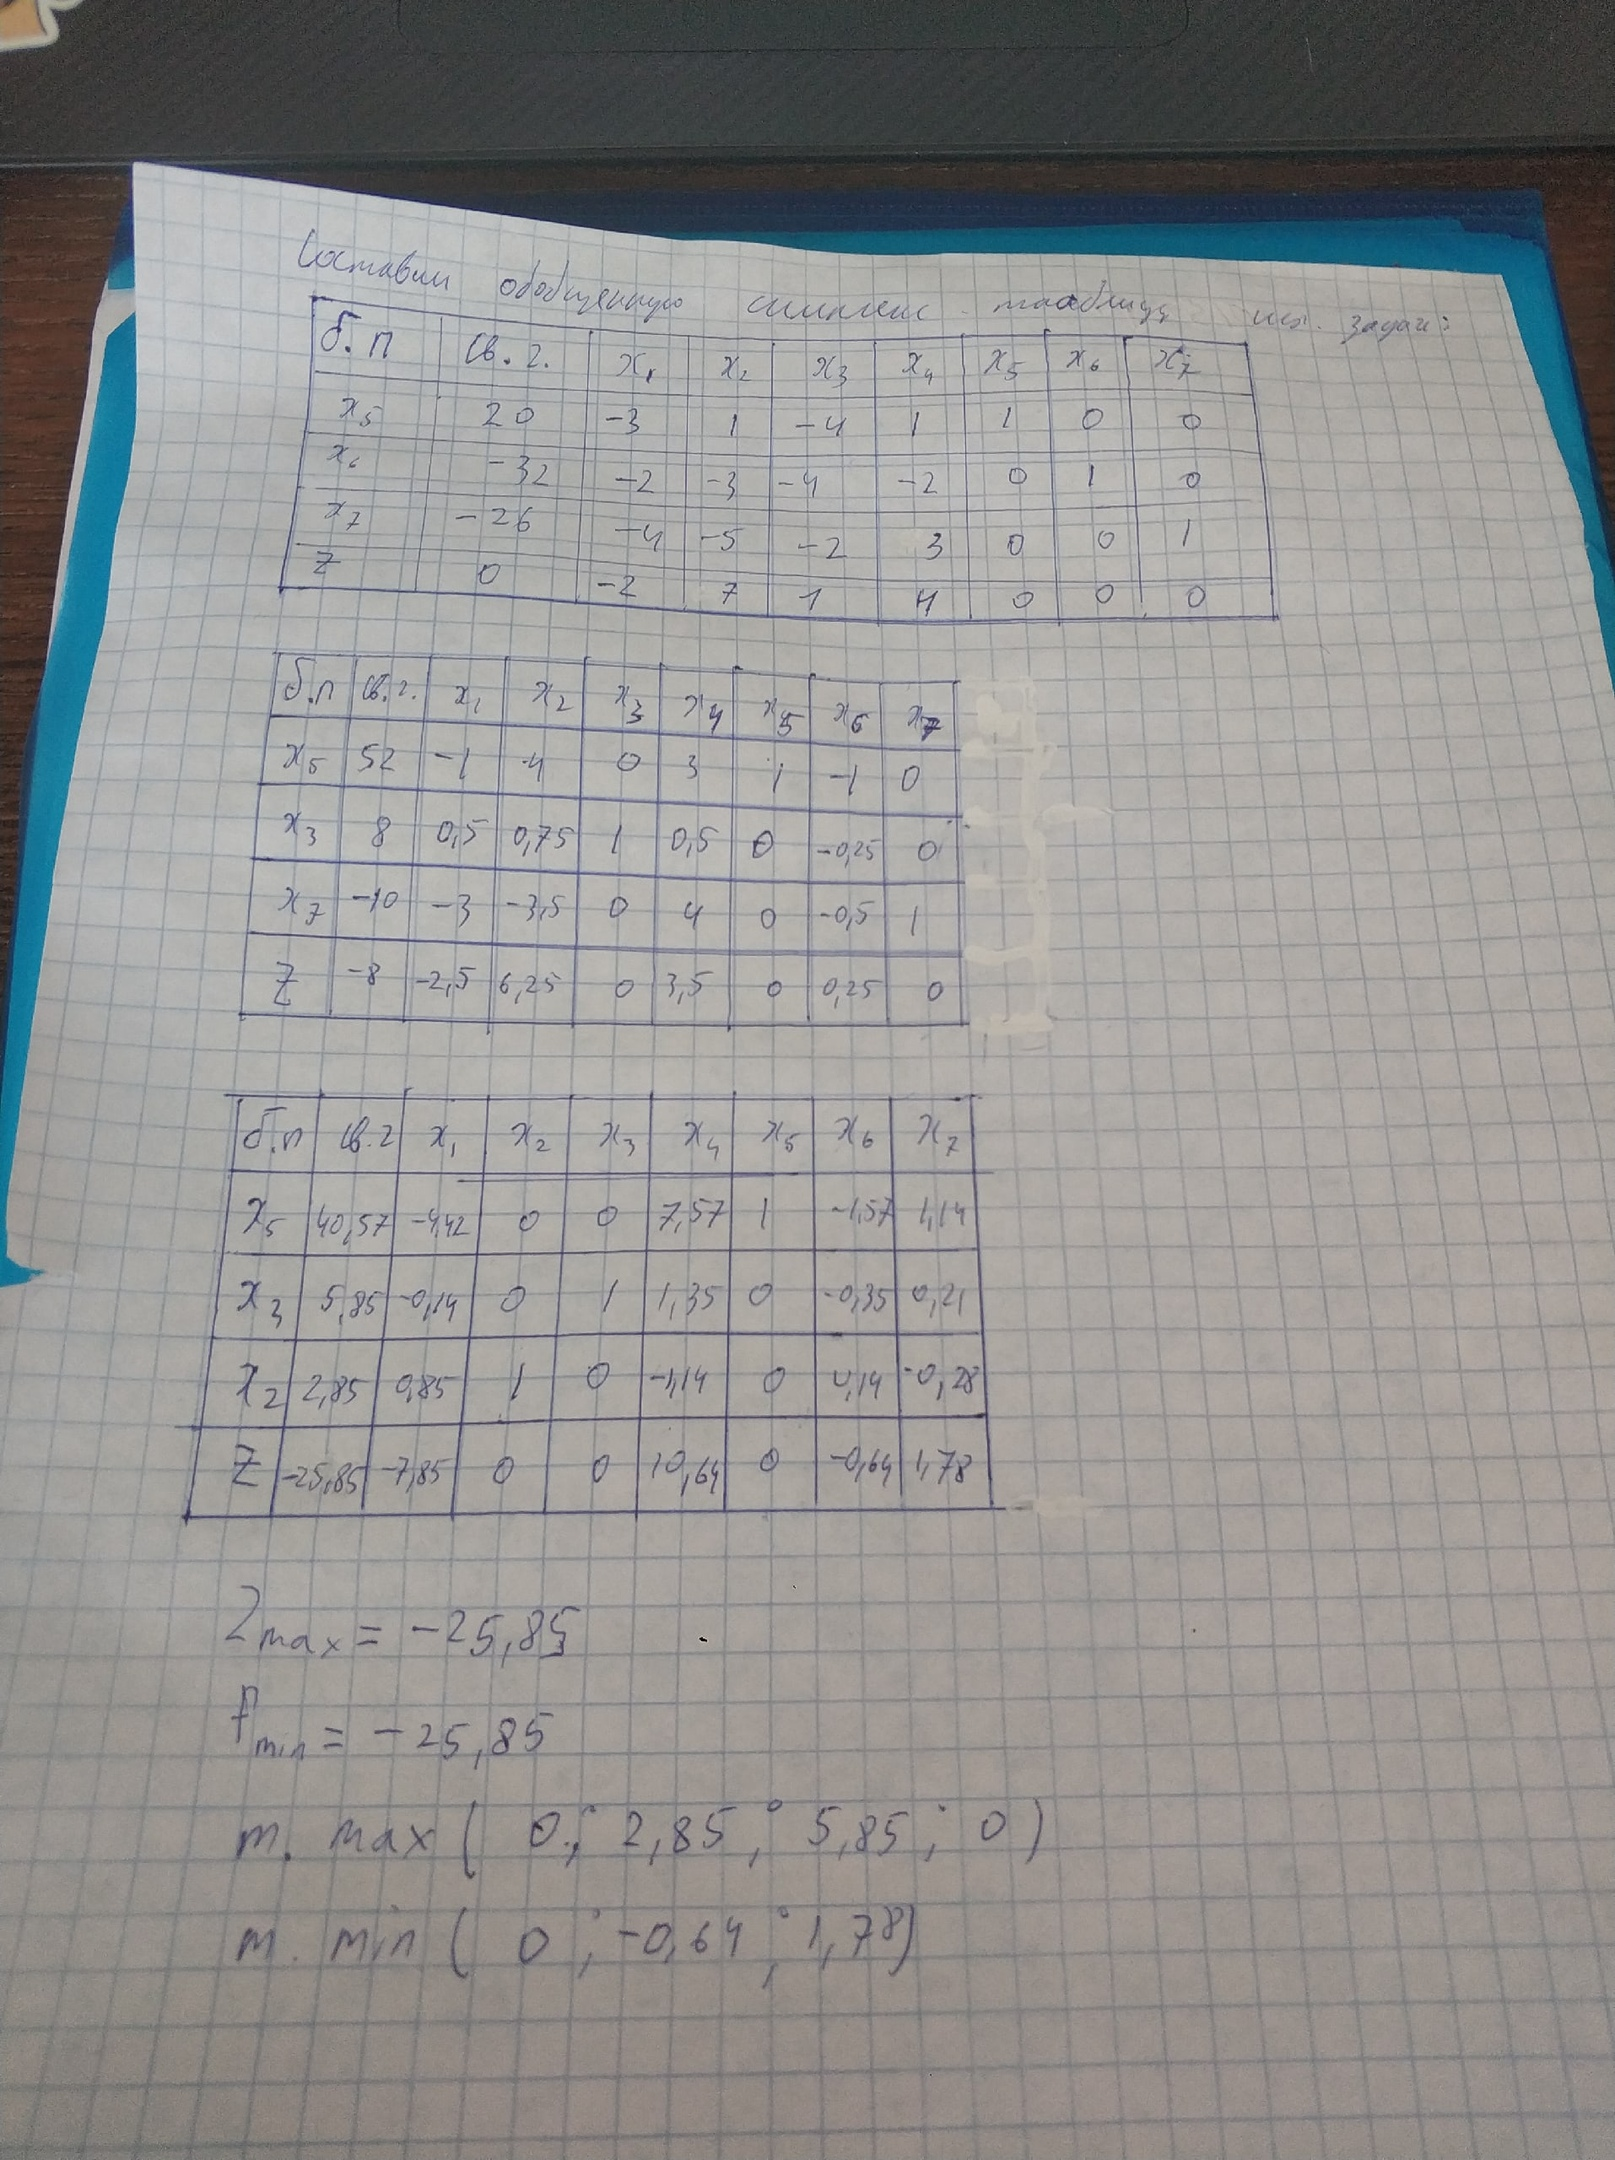 Составим обобщенную симплекс таблицу исх. задач:
б.п св.г. x₁ x₂ x₃ x₄ x₅ x₆ x₇
x₅ 20 -3 1 -4 1 1 0 0
x₆ -32 -2 -3 -4 -2 0 1 0
x₇ -26 -4 -5 -2 3 0 0 1
Z 0 -2 7 1 4 0 0 0
б.п св.г. x₁ x₂ x₃ x₄ x₅ x₆ x₇
x₅ 52 -1 4 0 3 1 -1 0
x₃ 8 0,5 0,75 1 0,5 0 -0,25 0
x₇ -10 -3 -3,5 0 4 0 -0,5 1
Z -8 -2,5 6,25 0 3,5 0 0,25 0
б.п св.г x₁ x₂ x₃ x₄ x₅ x₆ x₇
x₅ 40,57 -4,42 0 0 7,57 1 -1,57 1,14
x₃ 5,85 -0,14 0 1 1,35 0 -0,35 0,21
x₂ 2,85 0,85 1 0 -1,14 0 0,14 -0,28
Z -25,85 -7,85 0 0 10,64 0 -0,64 1,78
Zmax = -25,85
fmin = -25,85
т. max ( 0 ; 2,85 ; 5,85 ; 0 )
т. min ( 0 ; -0,64 ; 1,78)